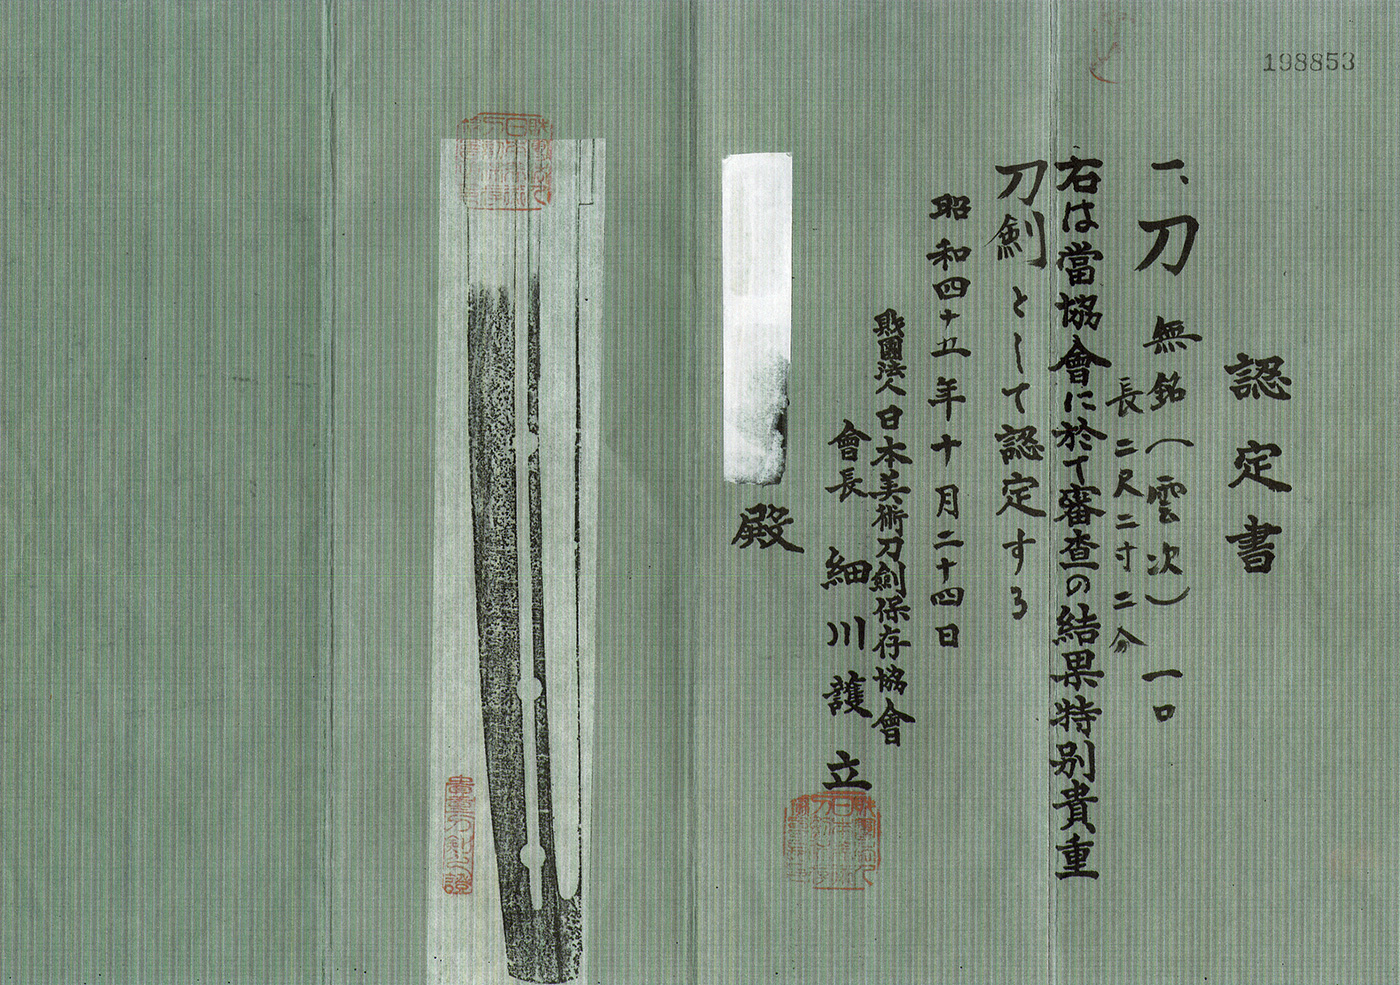 198853
認定書
一、刀 無銘(雲次) 一口
長二尺二寸二分
右は當協會に於て審査の結果特別貴重
刀劍として認定する
昭和四十五年十月二十四日
財團法人日本美術刀劍保存協會
會長 細川護立
殿
貴重刀剣之證